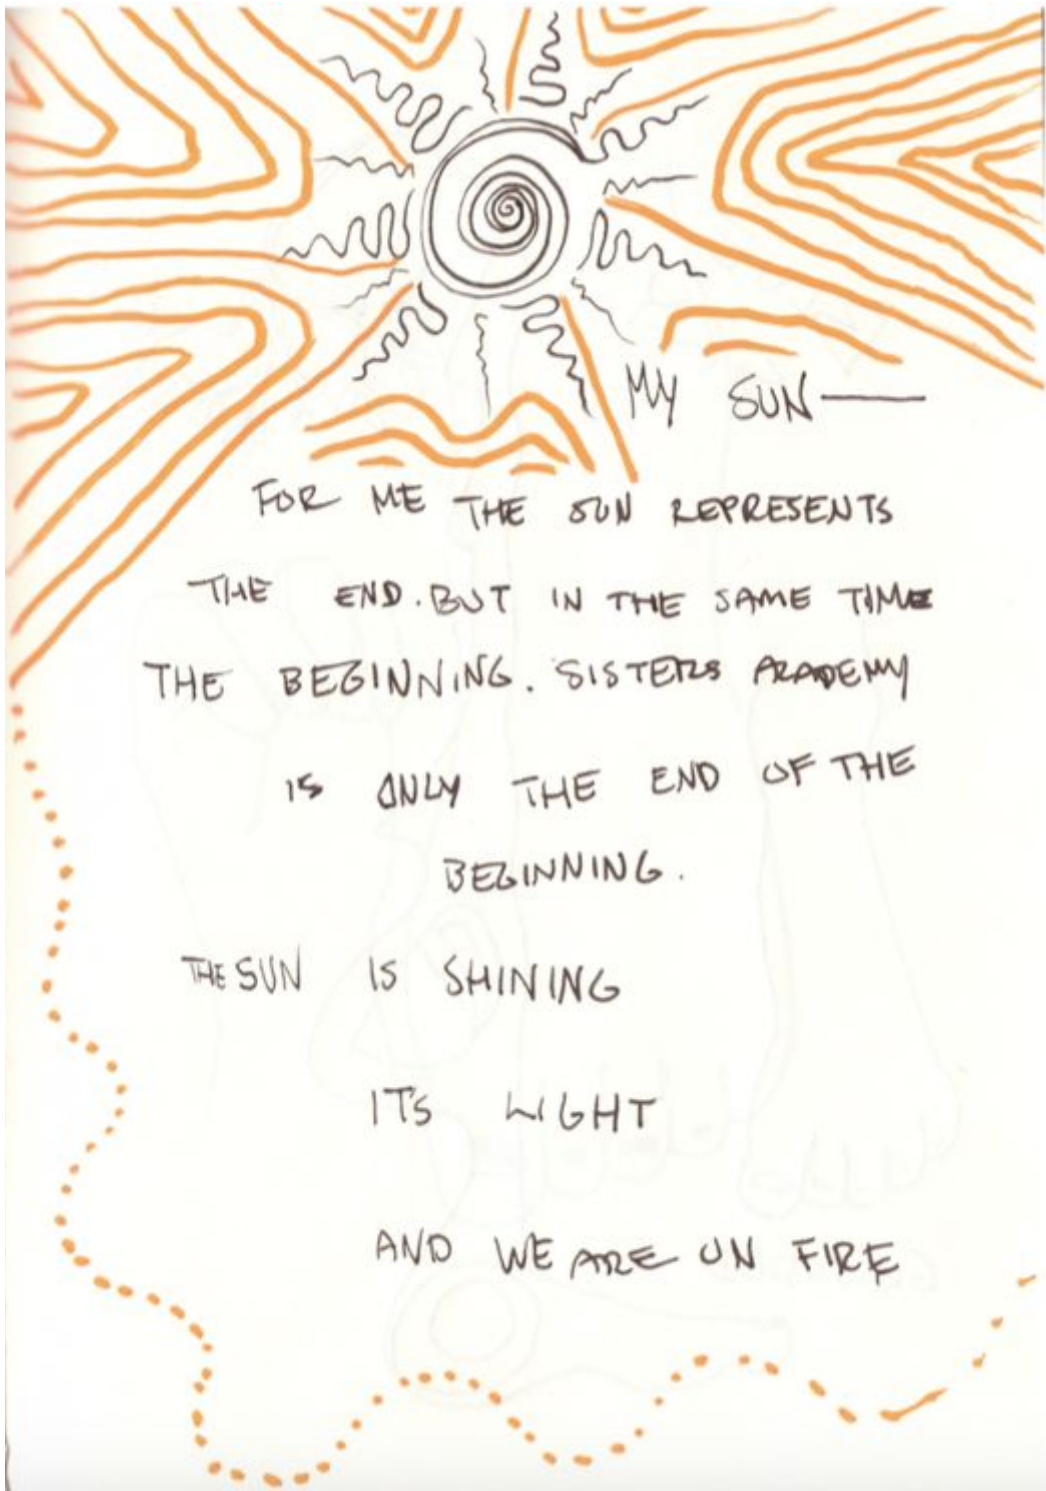 MY SUN—
FOR ME THE SUN REPRESENTS
THE END. BUT IN THE SAME TIME
THE BEGINNING. SISTERS ACADEMY
IS ONLY THE END OF THE
BEGINNING.
THE SUN IS SHINING
ITS LIGHT
AND WE ARE ON FIRE